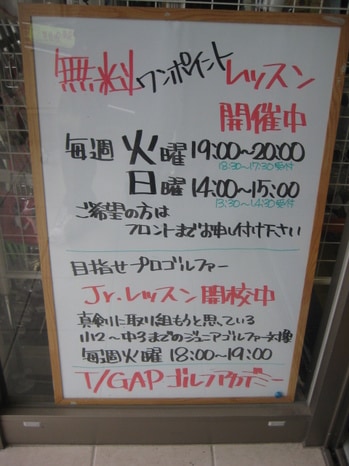 無料ワンポイントレッスン
開催中
毎週 火曜 19:00~20:00
18:30~19:30受付
日曜 14:00~15:00
13:30~14:30受付
ご希望の方は
フロントまでお申し付け下さい
目指せプロゴルファー
Jr.レッスン開校中
真剣に取り組もうと思っている
小2~中3までのジュニアゴルファー対象
毎週火曜 18:00~19:00
T/GAPゴルフアカデミー